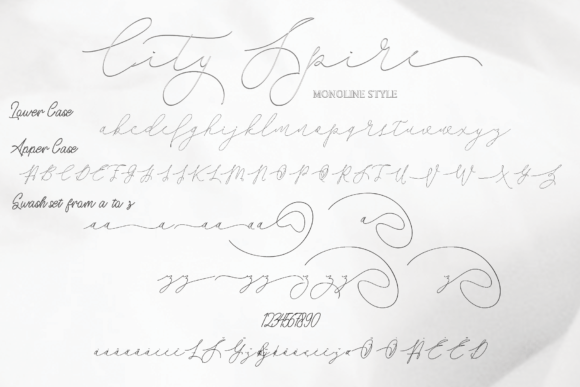 City Spire
MONOLINE STYLE
Lower Case
abcdefghijklmnopqrstuvwxyz
Apper Case
ABCDEFGHIJKLMNOPQRSTUVWXYZ
Swash set from a to z
aa a a aa aa a
zz zz zz zz z
1234567890